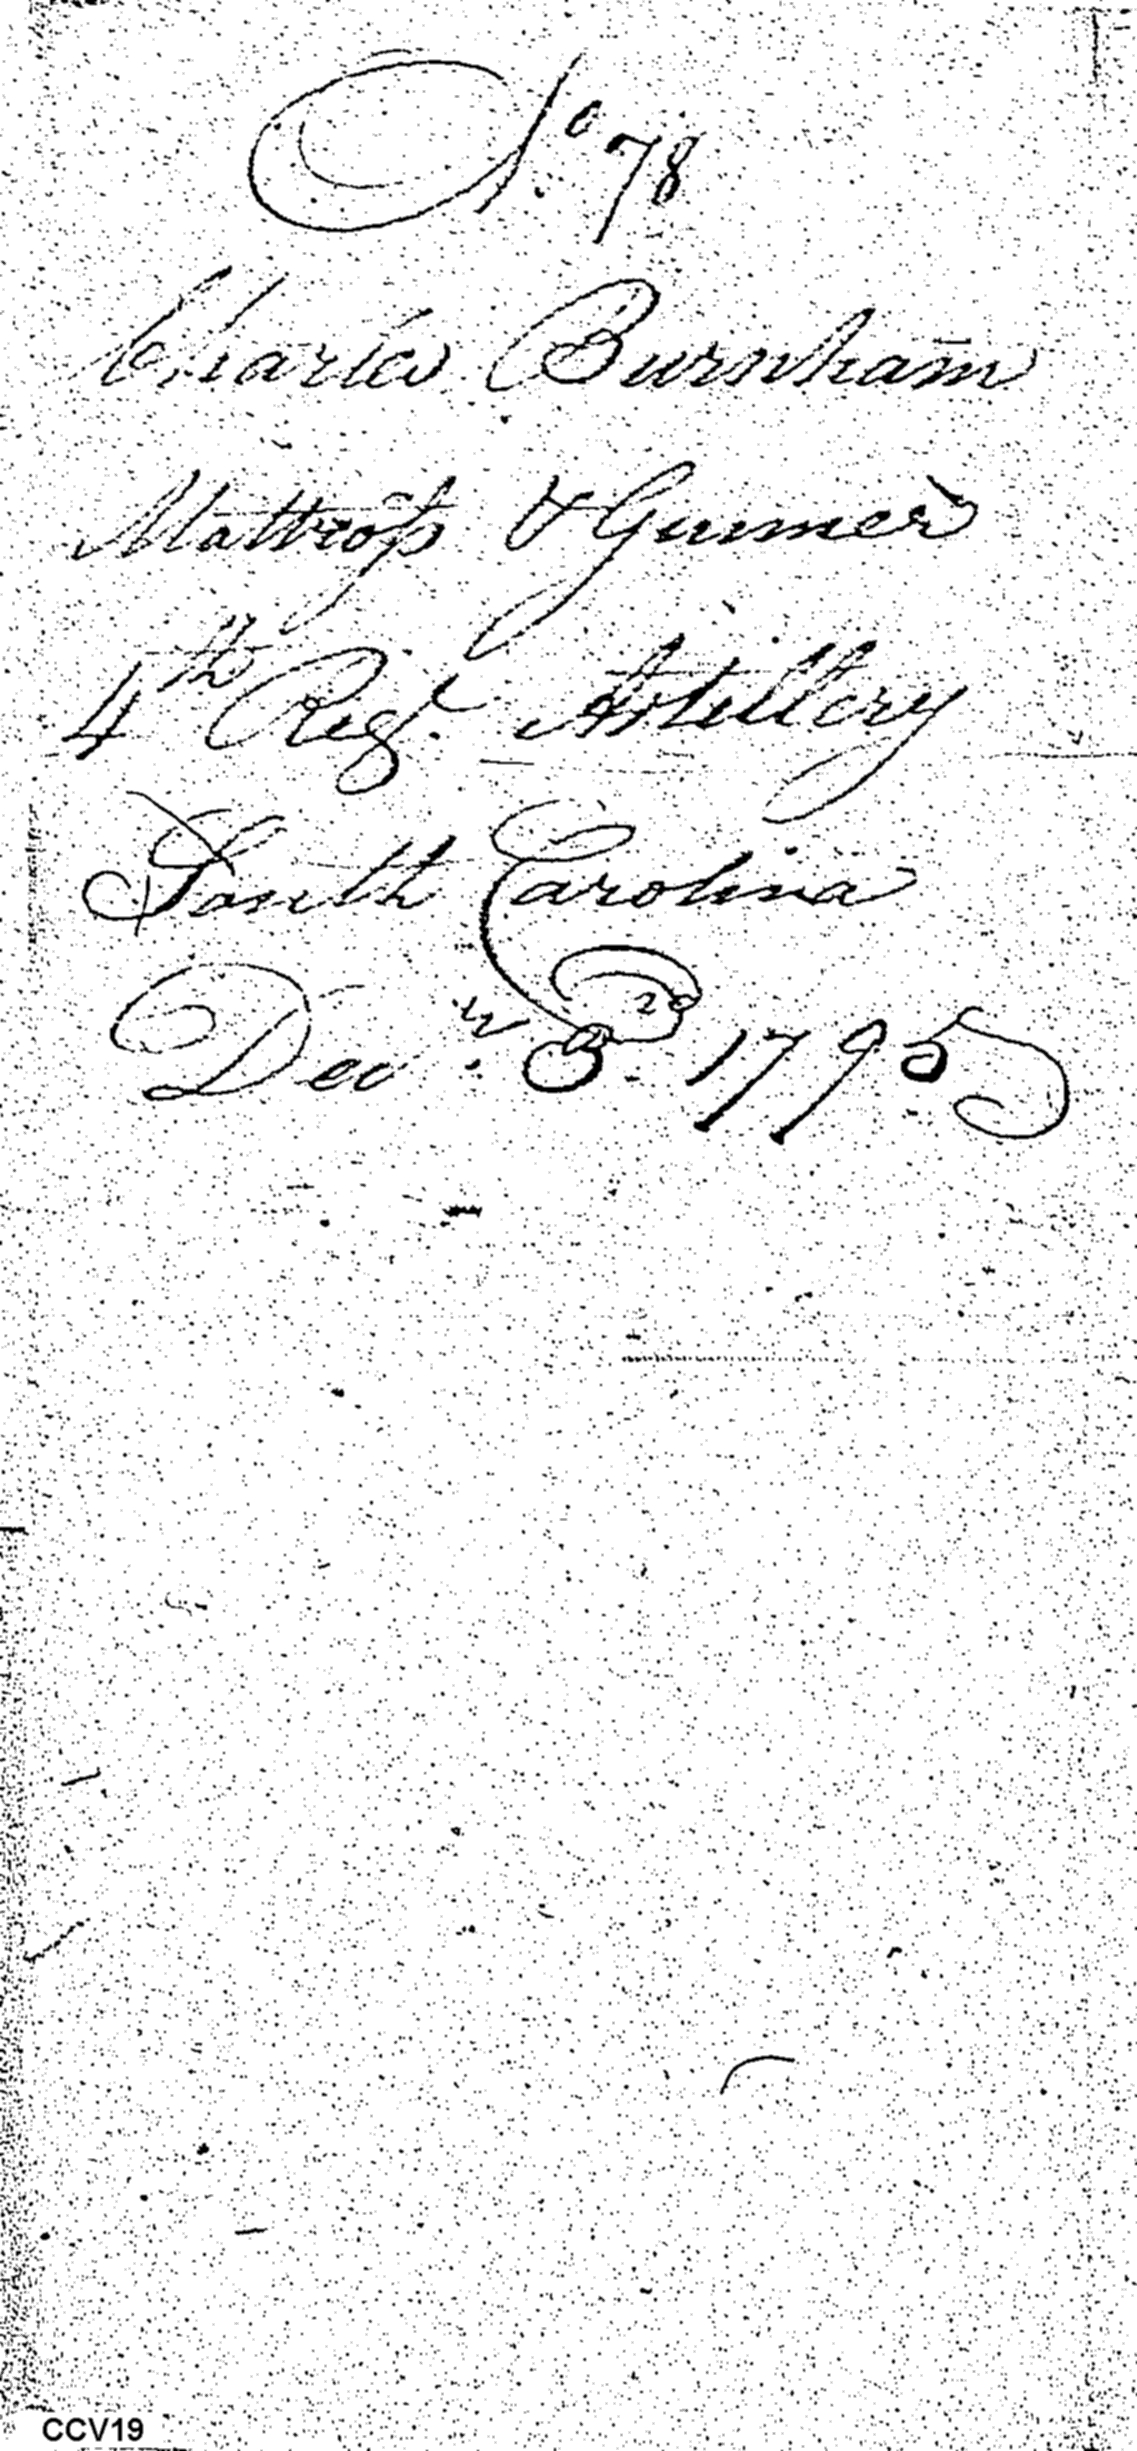 No 78
Charles Burnham
Mattross & Gunner
4th Regt. Artillery
South Carolina
Decr. 3d. 1795
CCV19